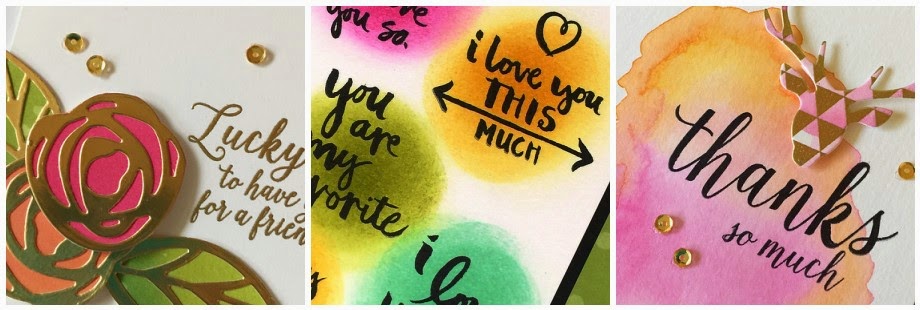 Lucky
to have
for a frien
you so.
i love you
THIS
MUCH
you
are
my
vorite
i
lo
thanks
so much